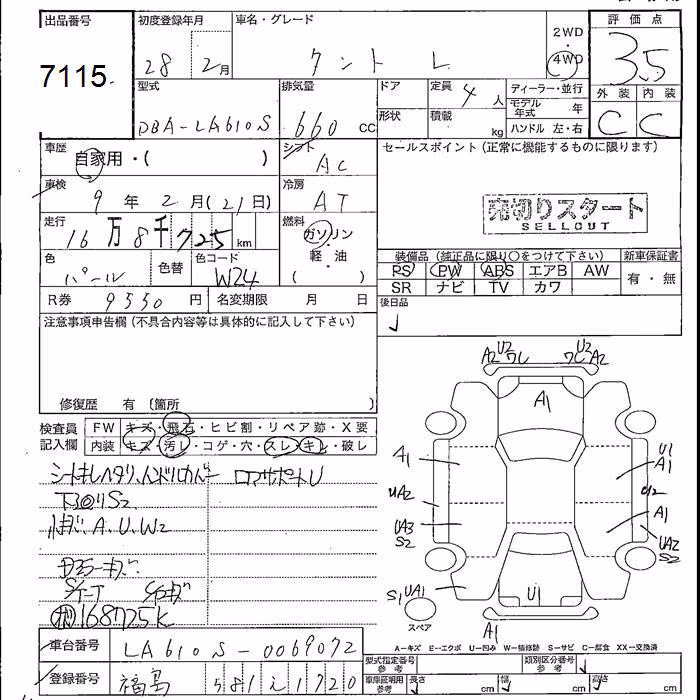 出品番号 初度登録年月 車名・グレード 2WD 評価点
7115 28年 2月 タント L 4WD 3.5
型式 排気量 ドア 定員 4人 ディーラー・並行 外装 内装
DBA-LA610S 660 cc 形状 積載 kg モデル年式 年 C C
ハンドル 左・右
車歴 自家用・( ) シフト AC セールスポイント (正常に機能するものに限ります)
車検 9年 2月 (21日) 冷房 AT
売切りスタート
SELLOUT
走行 16万8千725km 燃料 ガソリン・軽油 ( )
装備品 (純正品に限り○をつけて下さい) 新車保証書
色 パール 色替 色コード W24 PS PW ABS エアB AW 有・無
SR ナビ TV カワ
R券 9550円 名変期限 月 日 後日品
注意事項申告欄 (不具合内容等は具体的に記入して下さい)
修復歴 有 (箇所 )
検査員記入欄 FW キズ・飛石・ヒビ割・リペア跡・X要
内装 キズ・汚し・コゲ・穴・スレ・キレ・破レ
A2 U2 ワレ U2 ワレ A2
A1
A1 U1 A1
UA2 U2
A1
UA3 S2 UA2 S2
S1 UA1 U1
スペア
A1
シートキレヘタリ、ハンドルカバー ロアサポートU
下回りS2
A、U、W2
168725K
A－キズ E－エクボ U－凹み W－補修跡 S－サビ C－腐食 XX－交換済
車台番号 LA610S-0069072
型式指定番号 参考 類別区分番号 参考
登録番号 福島 581 え 1720
車庫証明用参考 長さ cm 幅 cm 高さ cm